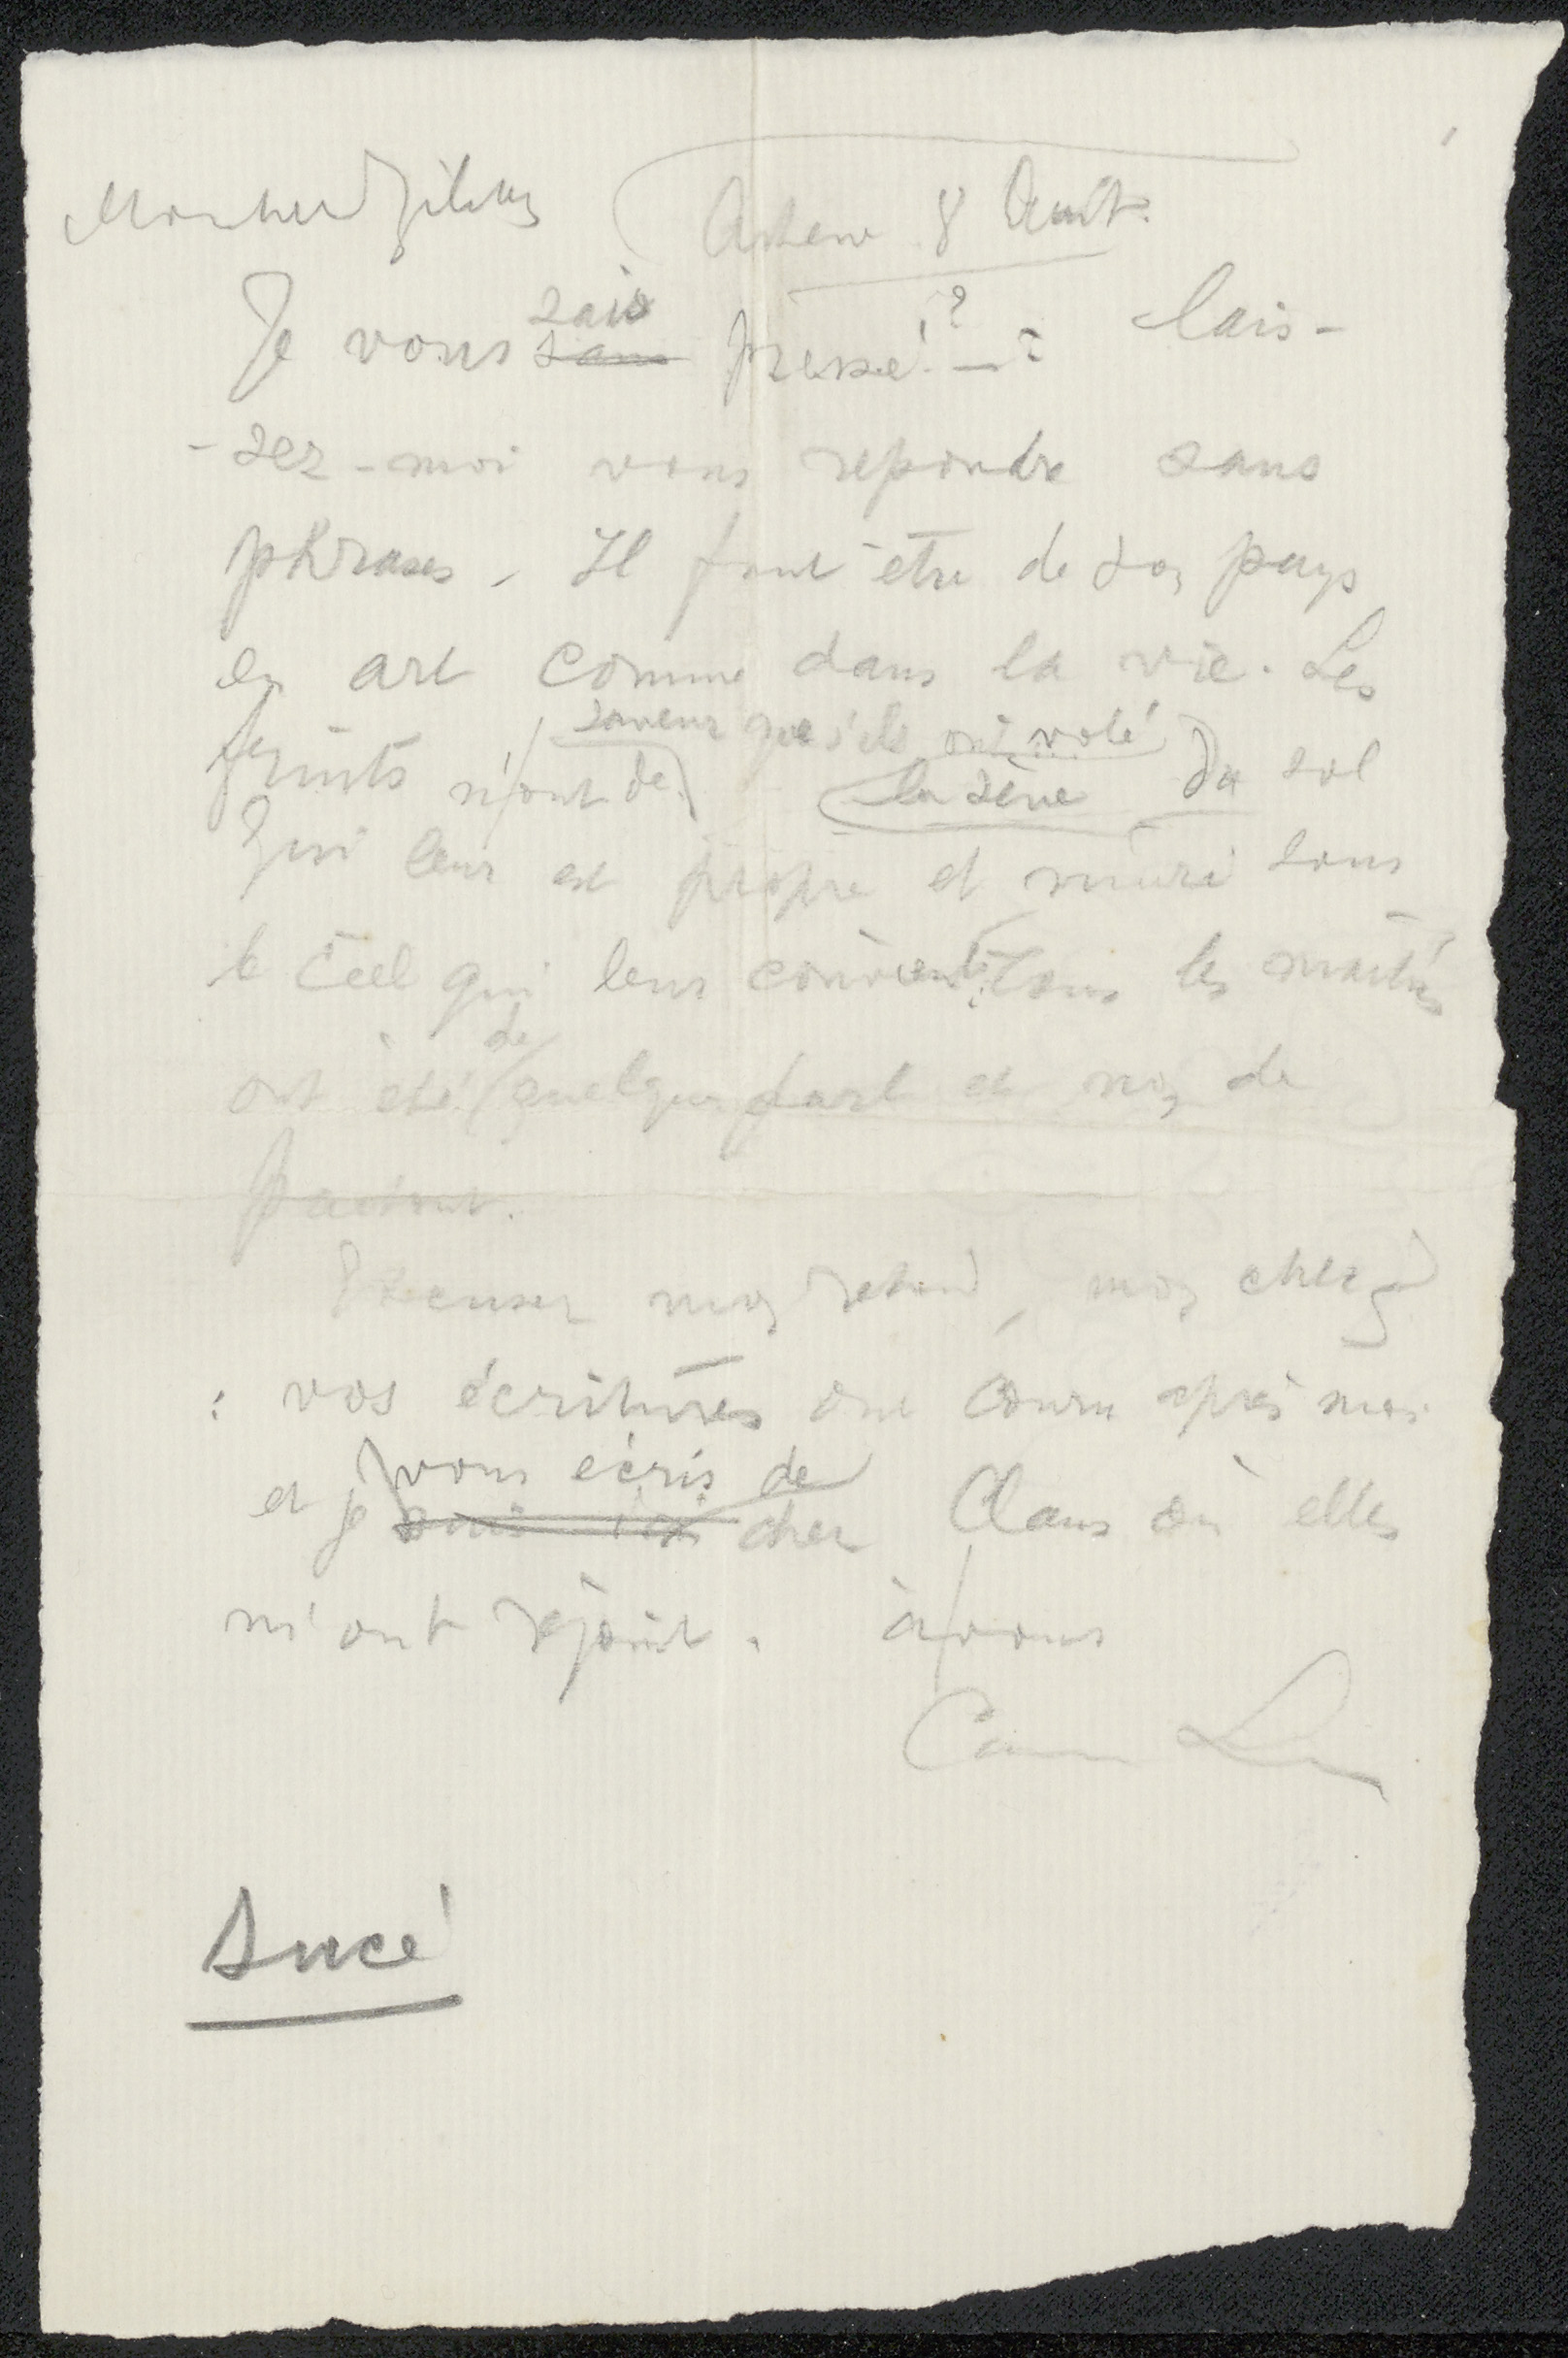 Mon cher Zilcken
Astene 8 Aout.
Je vous sais pressé. — : lais-
-sez-moi vous repondre sans
phrases - Il faut être de son pays
en art comme dans la vie. Les
saveur que s'ils ont volé
fruits n'ont de la sève du sol
qui leur est propre et muri sous
le ciel qui leur convient. Tous les maîtres
de
ont été quelque part et non de
partout.
Excusez mon retard, mon cher
: vos écritures ont couru après moi
vous écris de
et je cher Claus où elles
m'ont rejoint. à vous
Sucé